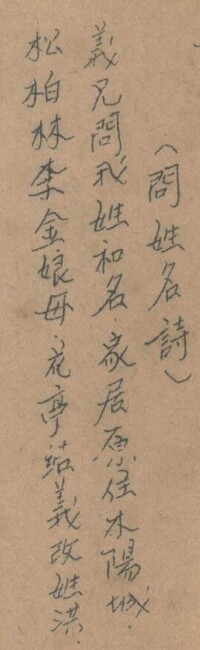 （問姓名詩）
義兄問我姓和名．家居原住木陽城．
松柏林李金娘母．花亭結義改姓洪．